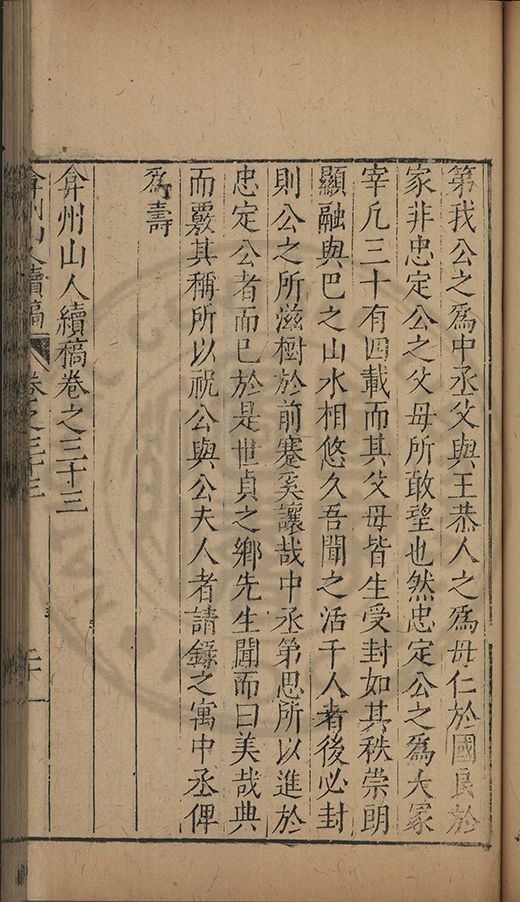 第我公之爲中丞父與王恭人之爲母仁於國良於
家非忠定公之父母所敢望也然忠定公之爲大冡
宰凢三十有四載而其父母皆生受封如其秩崇朗
顯融與巴之山水相悠久吾聞之活千人者後必封
則公之所滋樹於前蹇奚讓哉中丞第思所以進於
忠定公者而已於是世貞之鄉先生聞而曰美哉典
而覈其稱所以祝公與公夫人者請錄之寓中丞俾
爲壽
弇州山人續稿卷之三十三
弇州山人續稿 卷之三十三